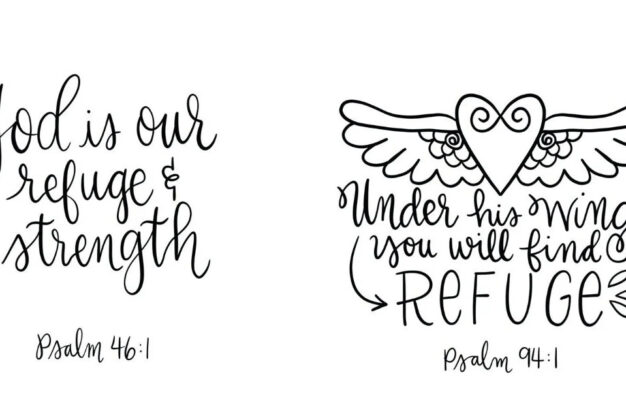 God is our
refuge &
strength
Psalm 46:1
Under his wing
you will find
REFUGE
Psalm 94:1